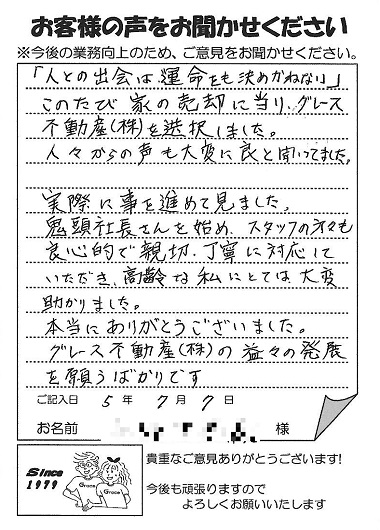 お客様の声をお聞かせください
※今後の業務向上のため、ご意見をお聞かせください。
「人との出会は運命をも決めかねない」
このたび家の売却に当り、グレース
不動産(株)を選択しました。
人々からの声も大変に良と聞いてました。
実際に事を進めて見ました。
鬼頭社長さんを始め、スタッフの方々も
良心的で親切、丁寧に対応して
いただき、高齢な私にとては大変
助かりました。
本当にありがとうございました。
グレース不動産(株)の益々の発展
を願うばかりです
ご記入日 5年 7月 7日
お名前 様
貴重なご意見ありがとうございます!
今後も頑張りますので
よろしくお願いいたします
Since
1979
Grace
Grace